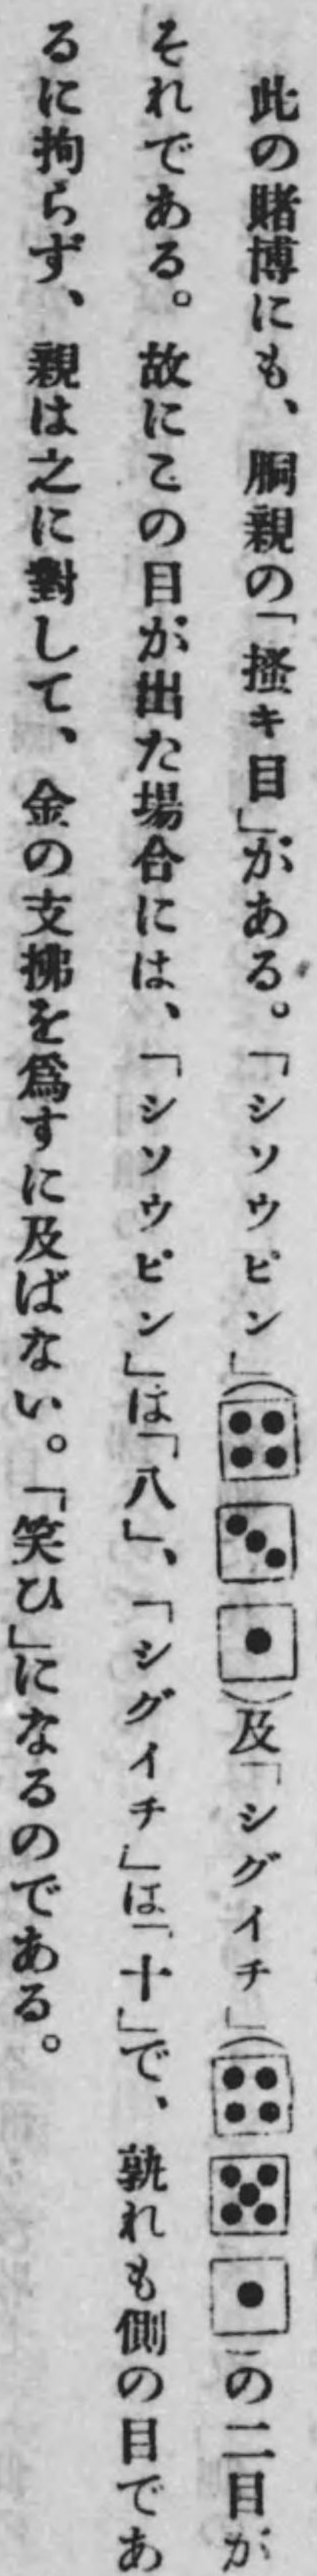 此の賭博にも、胴親の「搔キ目」がある。「シソウピン」（⚃⚂⚀）及「シグイチ」（⚃⚄⚀）の二目が
それである。故にこの目が出た場合には、「シソウピン」は「八」、「シグイチ」は「十」で、孰れも側の目であ
るに拘らず、親は之に對して、金の支拂を爲すに及ばない。「笑ひ」になるのである。